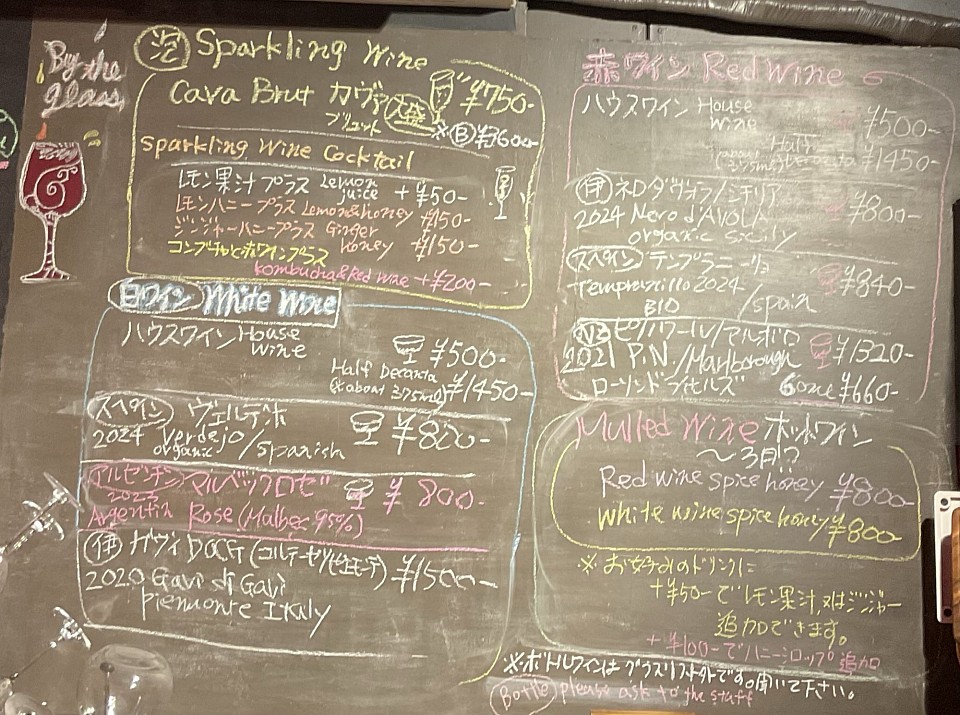 By the
glass
泡 Sparkling Wine
Cava Brut カヴァ ¥750-
ブリュット
※ B ¥3600-
Sparkling Wine Cocktail
レモン果汁プラス Lemon juice +¥50-
レモンハニープラス Lemon&honey ¥150-
ジンジャーハニープラス Ginger honey ¥150-
コンブチャと赤ワインプラス
Kombucha&Red wine +¥200-
白ワイン White Wine
ハウスワイン House Wine ¥500-
Half Decanta
(※about 375ml) ¥1450-
スペイン ヴェルデホ
2024 Verdejo/Spanish ¥800-
organic
アルゼンチン マルベックロゼ ¥800-
2023
Argentin Rose (Malbec 95%)
伊 ガヴィ DOCG (コルテーゼ/ピエモンテ) ¥1500-
2020 Gavi di Gavi
Piemonte Itary
赤ワイン Red Wine
ハウスワイン House Wine ¥500-
Half
375ml) ¥1450-
伊 ネロダヴォラ/シチリア ¥800-
2024 Nero d'AVOLA
organic Sicily
スペイン テンプラニーリョ ¥840-
tempranillo 2024 /spain
BIO
NZ ピノノワール/マルボロ
2021 P.N./Marlborough ¥1320-
60ml ¥660-
Mulled Wine ホットワイン
〜3月?
Red wine spice honey ¥800-
White wine spice honey ¥800-
※お好みのドリンクに
+¥50-でレモン果汁又はジンジャー
追加できます。
+¥100-でハニーシロップ追加
※ボトルワインは グラスリスト外です。聞いて下さい。
Bottle please ask to the staff